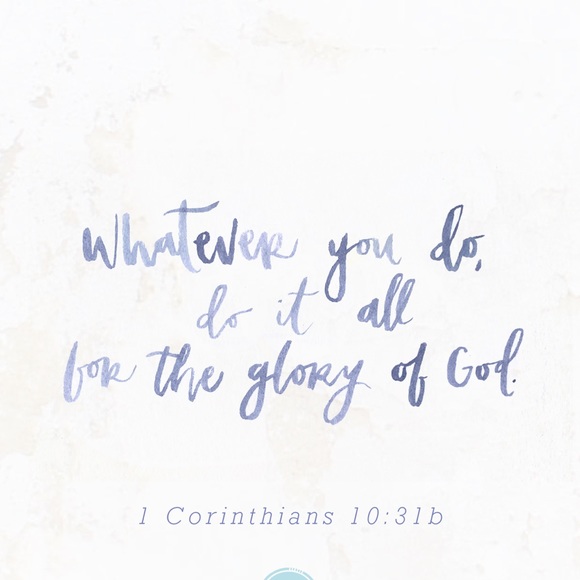 Whatever you do,
do it all
for the glory of God.
1 Corinthians 10:31b